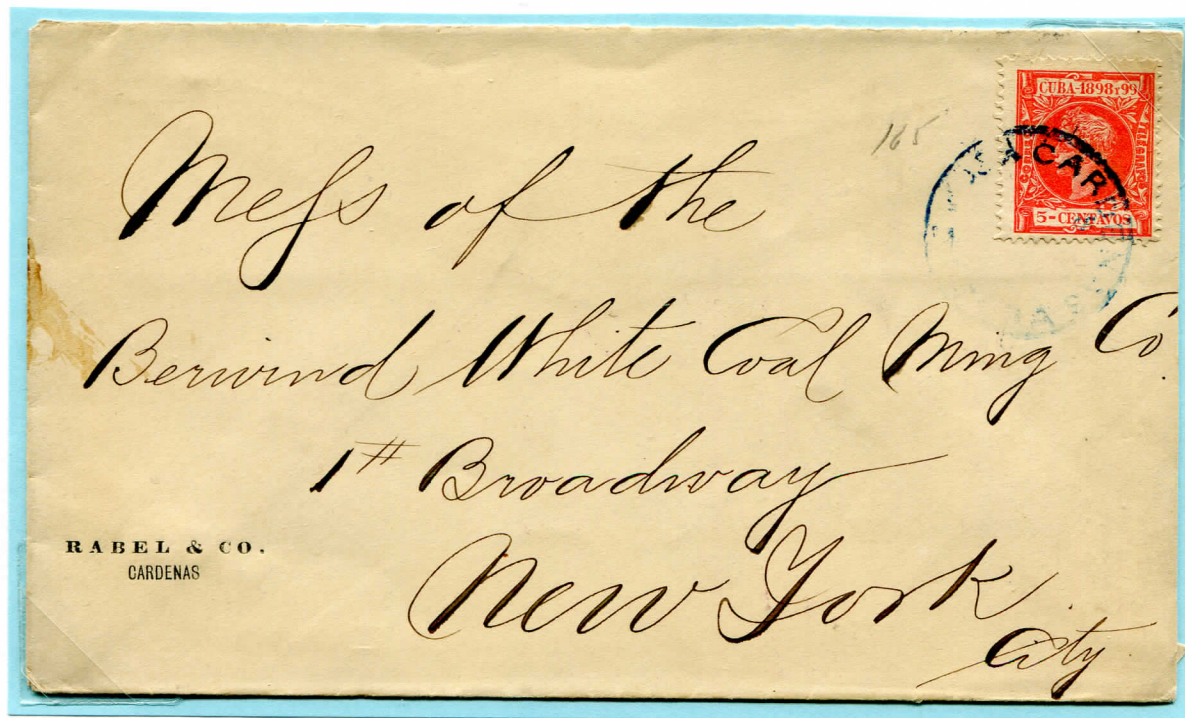 165
CUBA-1898 Y 99
5-CENTAVOS
CAR
Mess of the
Berwind White Coal Ming Co
1# Broadway
New York
City
RABEL & CO.
CARDENAS